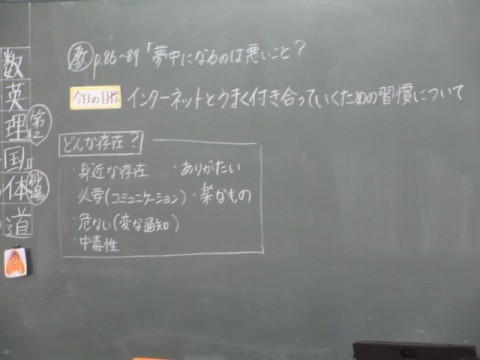 教 p.86~89「夢中になるのは悪いこと?
今日の目標 インターネットとうまく付き合っていくための習慣について
どんな存在?
・身近な存在 ・ありがたい
必要(コミュニケーション) ・楽なもの
・危ない(変な通知)
・中毒性
数
英
理 第2
国
体
道